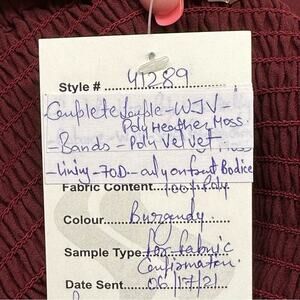 Style # 41289
Complete Sample - WJV -
Poly Heather Moss
- Bands - Poly Velvet
- Lining - 70D - only on front Bodice
Fabric Content 100% Poly
Colour Burgandy
Sample Type for fabric
Confirmation
Date Sent 06/17/21